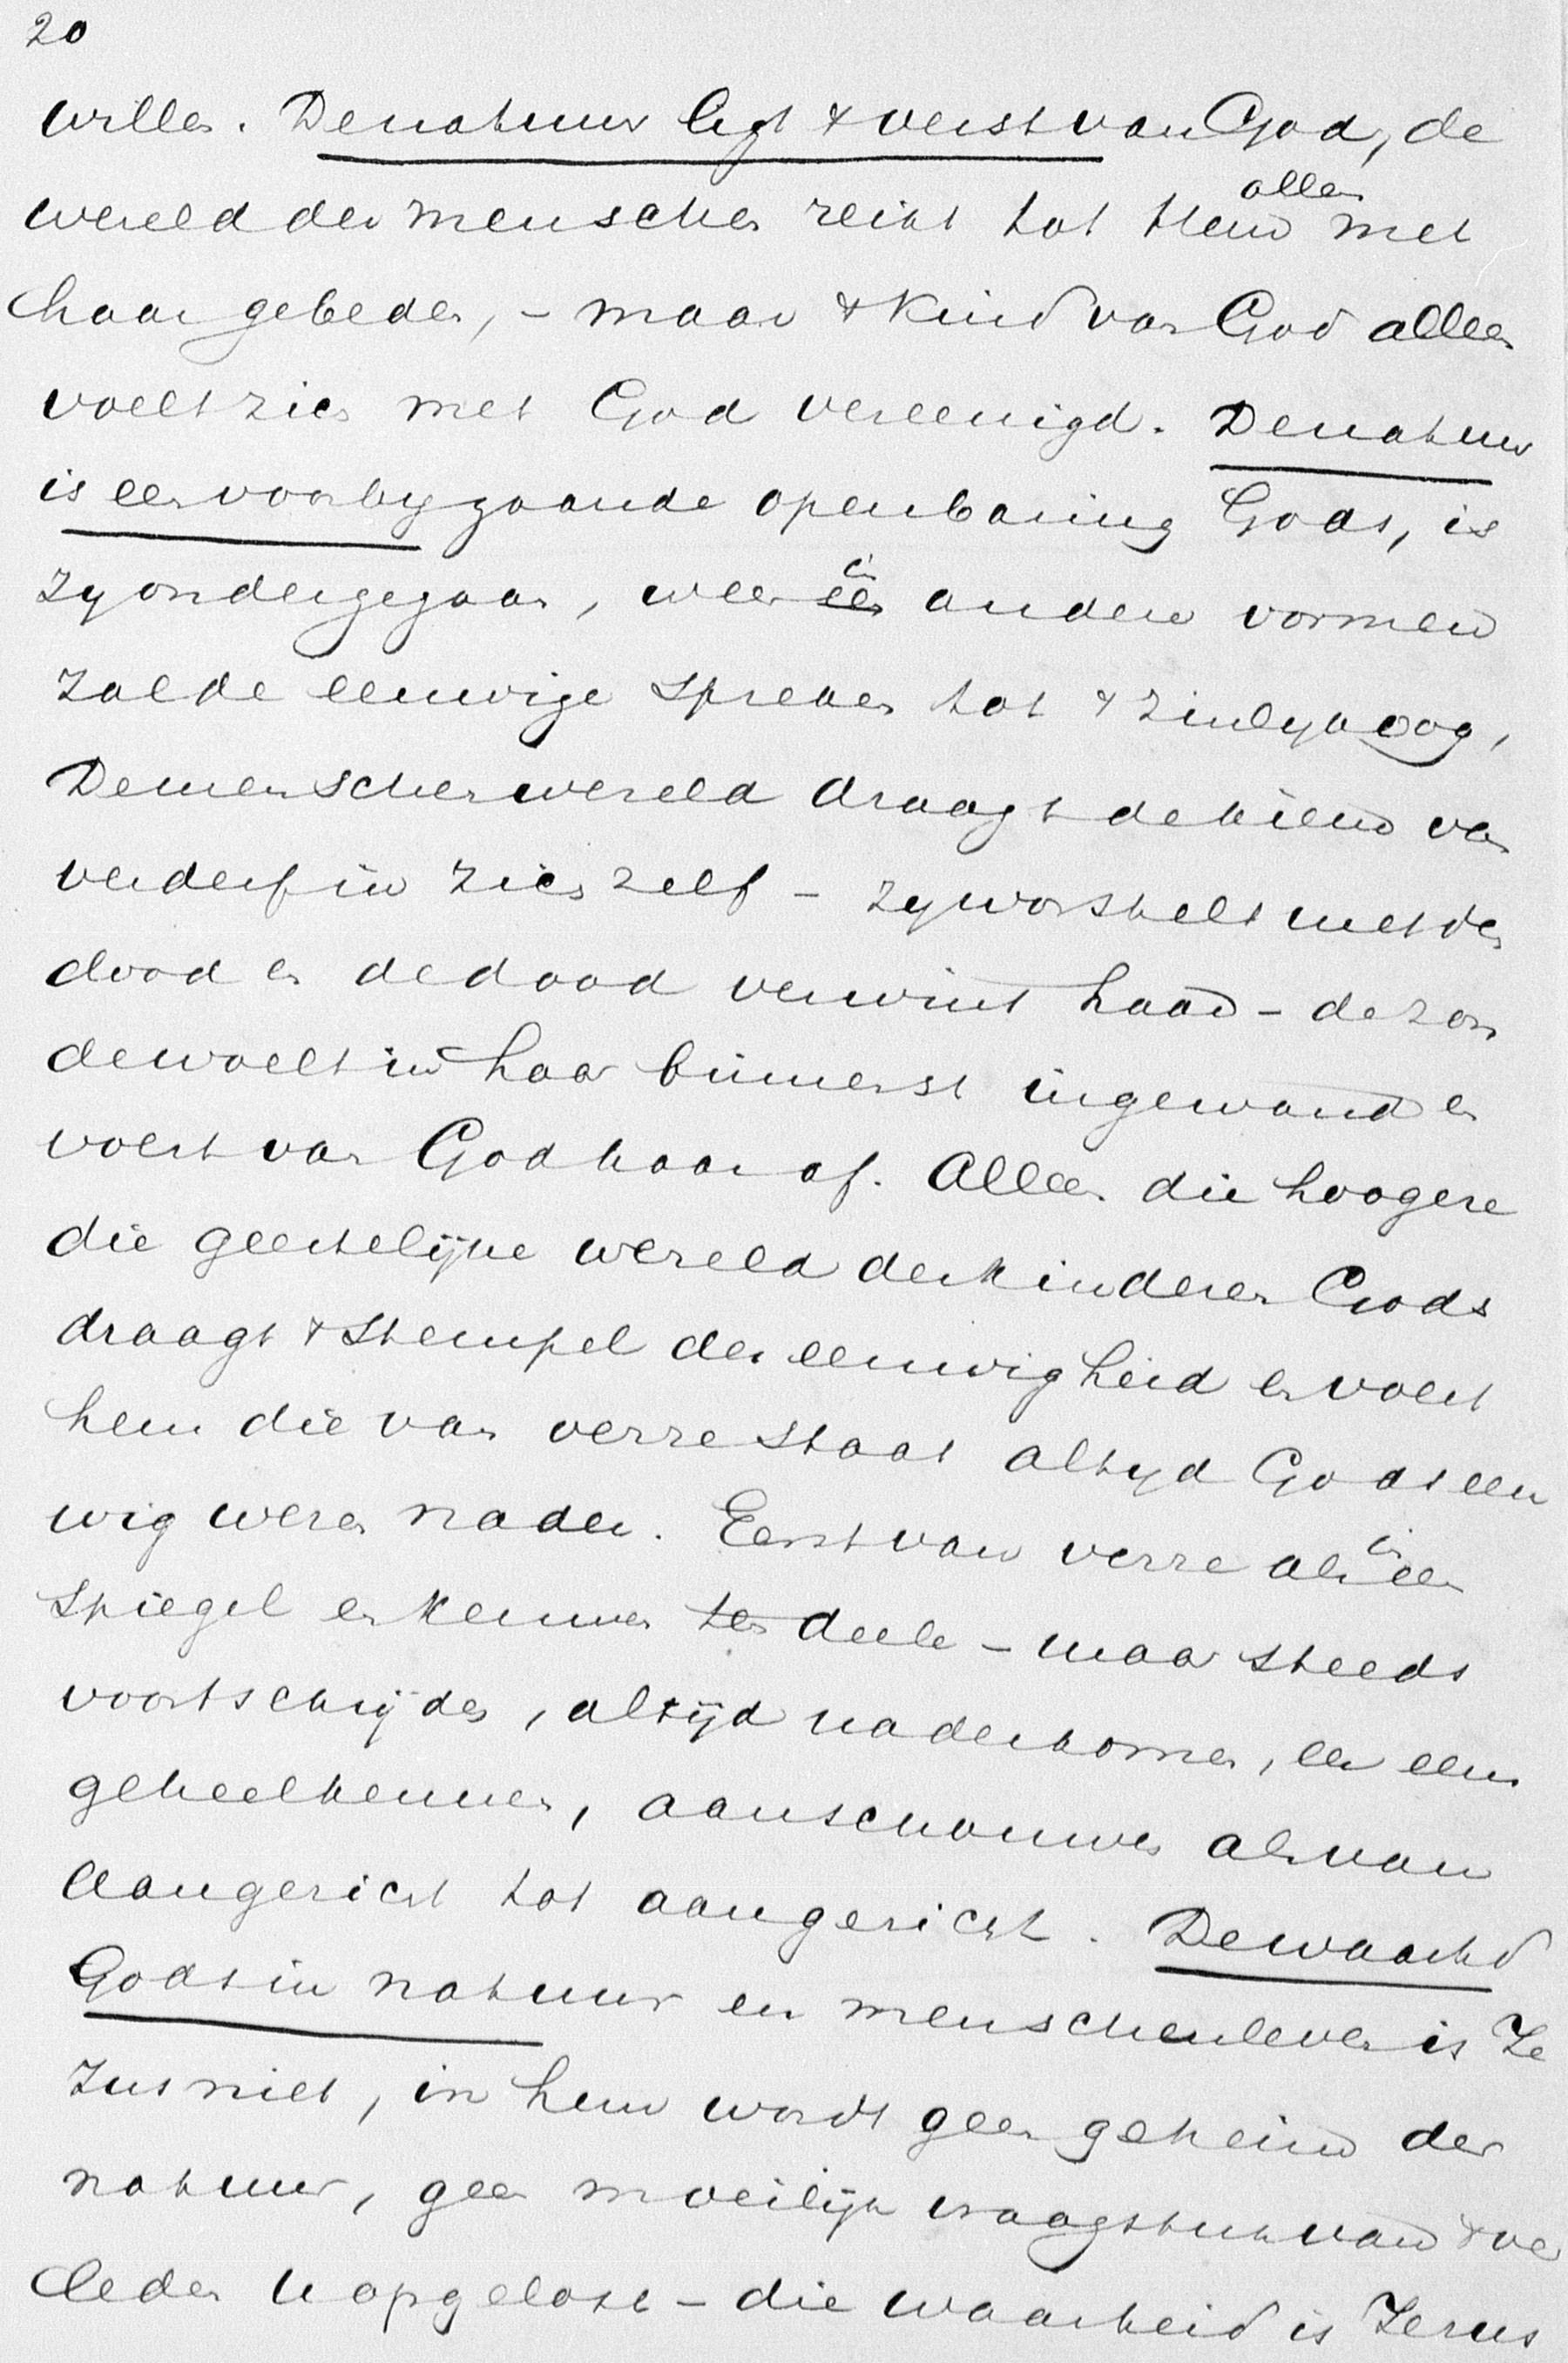 20
willen. De natuur ligt + verst van God, de
wereld der menschen reikt tot Hem allen met
haar gebeden, – maar + kind van God alleen
voelt zich met God vereenigd. De natuur
is een voorbygaande openbaring Gods, is
zy ondergegaan, weer in een andere vormen
zal de eeuwige spreken tot + zinlyk oog,
De menschenwereld draagt de kiem van
verderf in zich zelf – zy worstelt met den
dood en de dood verwint haar – de zon
de woelt in haar binnenst ingewand en
voert van God haar af. Alleen die hoogere
die geestelijke wereld der kinderen Gods
draagt + stempel der eeuwigheid en voert
hem die van verre staat altyd Gods eeu
wig wezen nader. Eerst van verre als in een
spiegel en kennen ten deele – maar steeds
voortschrijden, altijd nader komen, en eens
geheel kennen, aanschouwen als van
aangezicht tot aangezicht. De waarhd
Gods in natuur en menschenleven is Je
zus niet, in hem wordt geen geheim der
natuur, geen moeilijk vraagstuk van + ver
leden U opgelost – die waarheid is Jezus